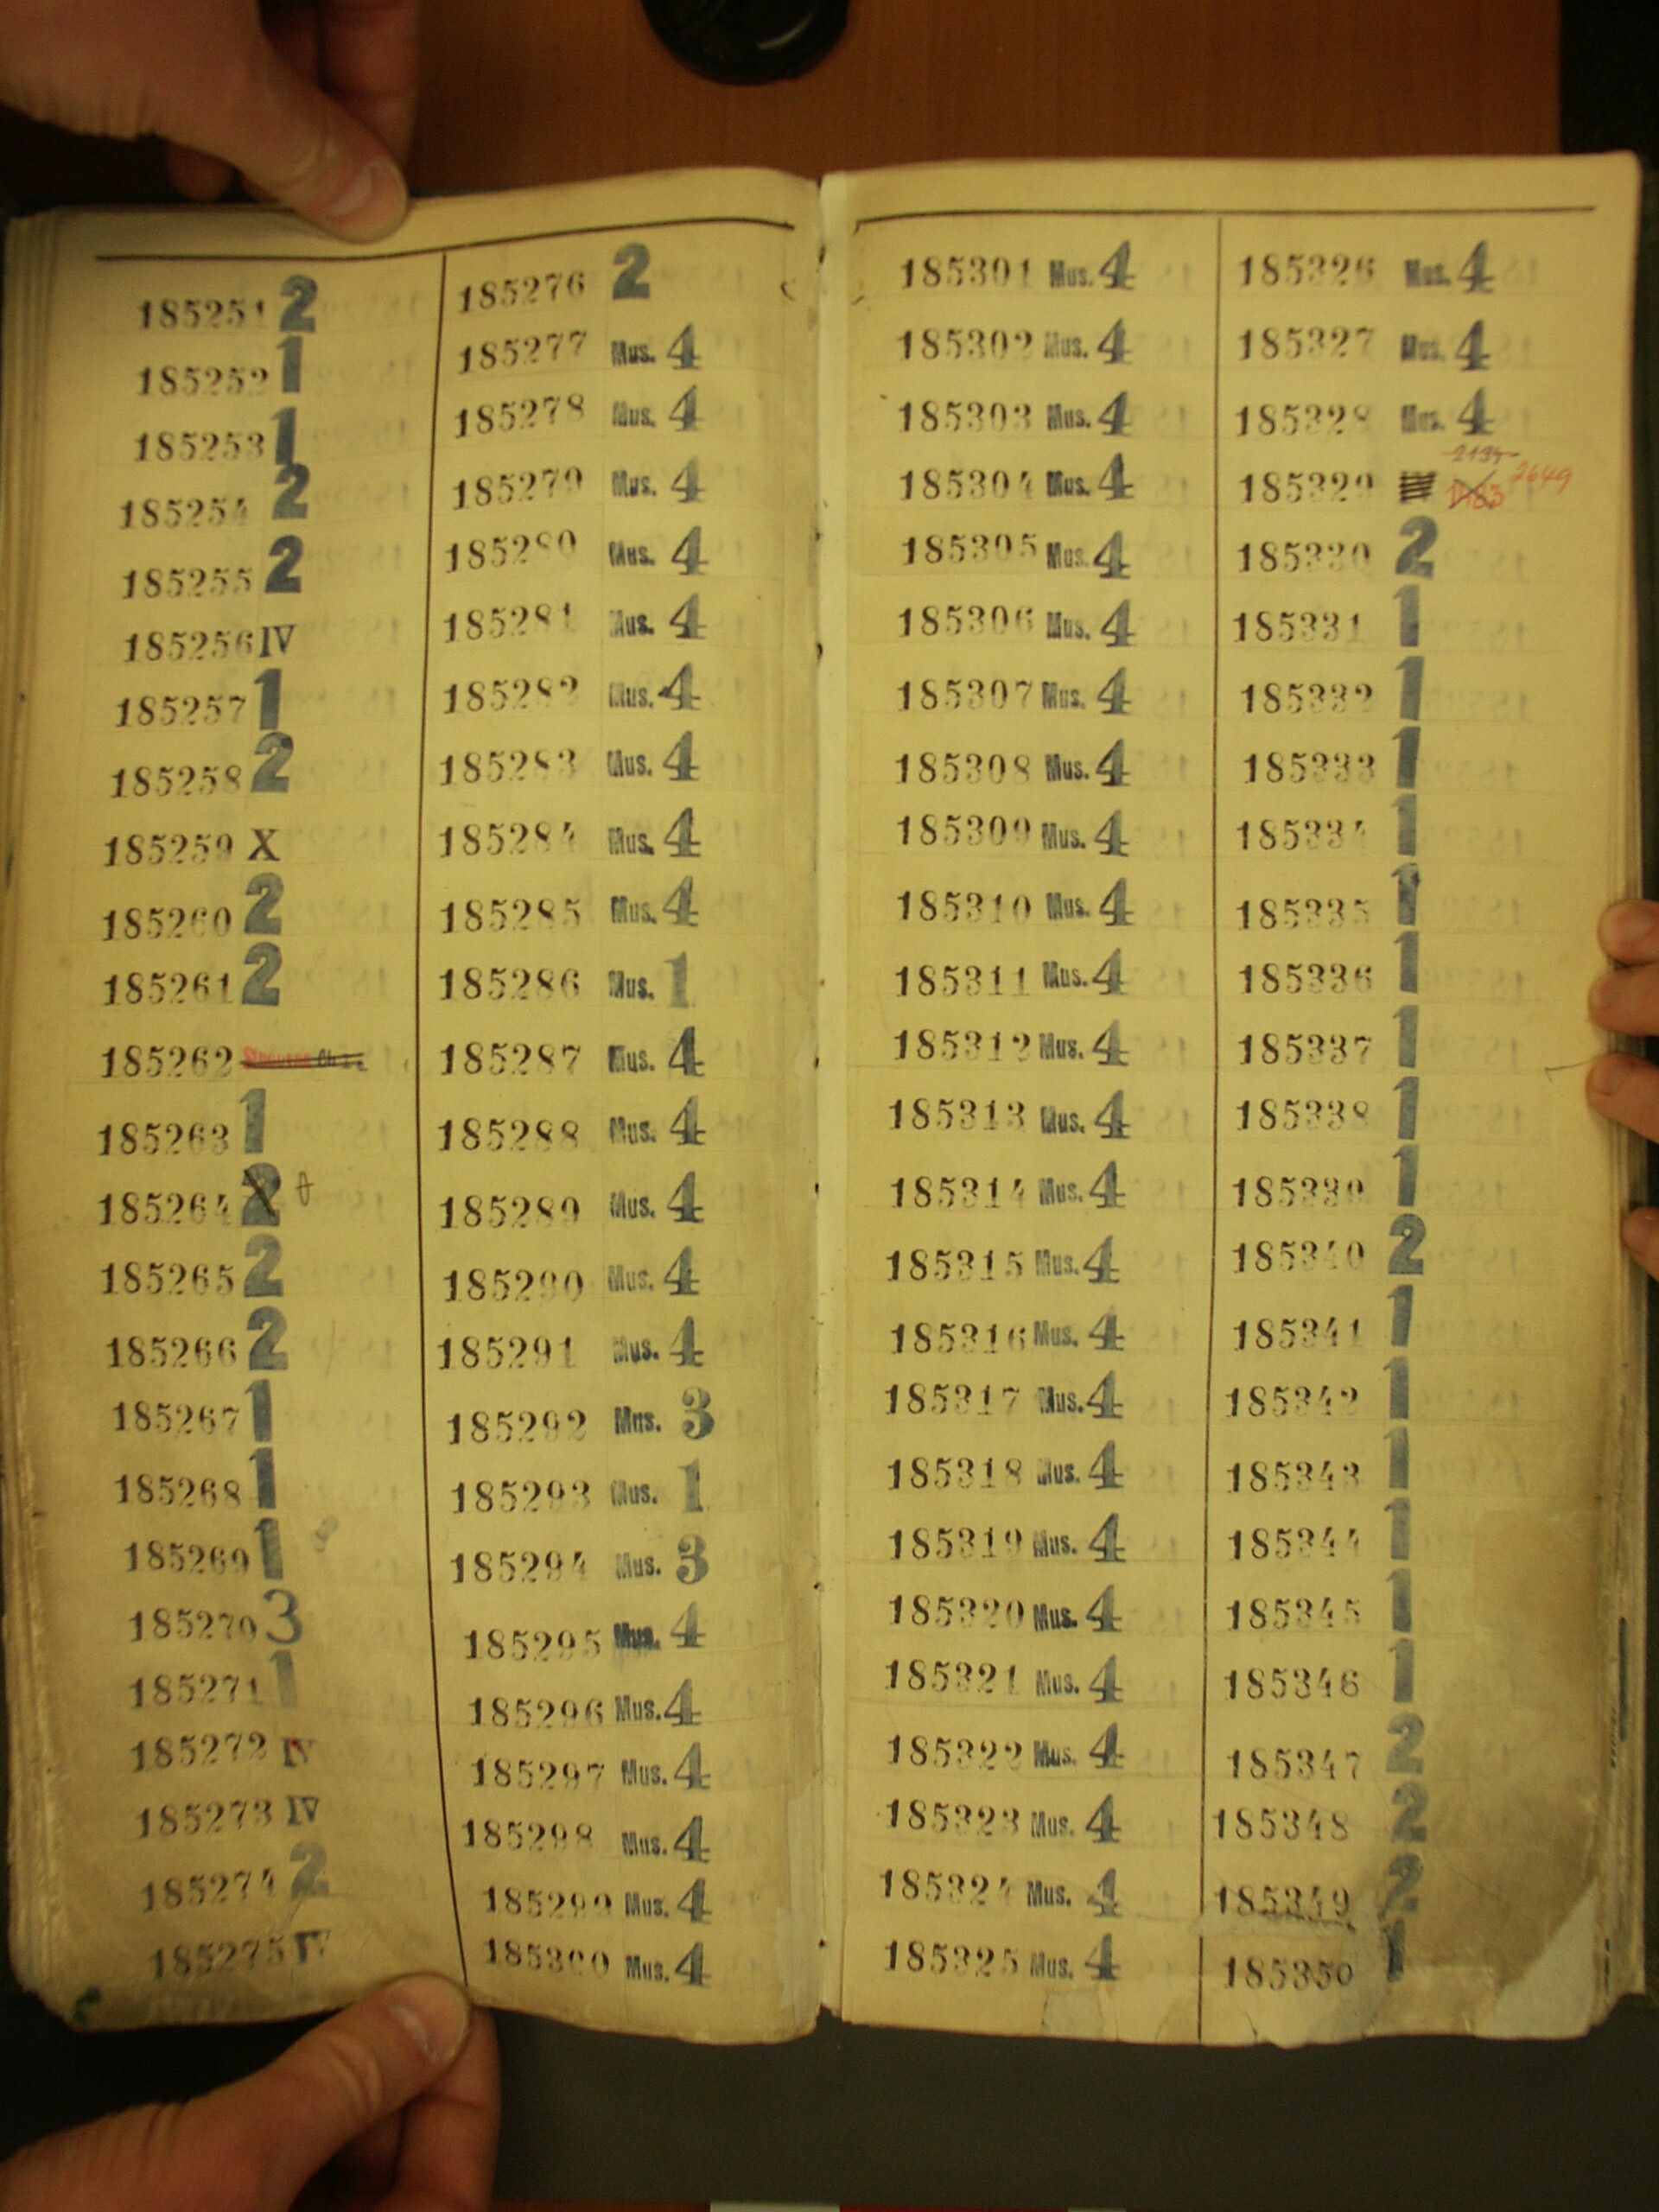 185251 2
185252 1
185253 1
185254 2
185255 2
185256 IV
185257 1
185258 2
185259 X
185260 2
185261 2
185262
185263 1
185264 2
185265 2
185266 2
185267 1
185268 1
185269 1
185270 3
185271 1
185272 IV
185273 IV
185274 2
185275 IV
185276 2
185277 Mus. 4
185278 Mus. 4
185279 Mus. 4
185280 Mus. 4
185281 Mus. 4
185282 Mus. 4
185283 Mus. 4
185284 Mus. 4
185285 Mus. 4
185286 Mus. 1
185287 Mus. 4
185288 Mus. 4
185289 Mus. 4
185290 Mus. 4
185291 Mus. 4
185292 Mus. 3
185293 Mus. 1
185294 Mus. 3
185295 Mus. 4
185296 Mus. 4
185297 Mus. 4
185298 Mus. 4
185299 Mus. 4
185300 Mus. 4
185301 Mus. 4
185302 Mus. 4
185303 Mus. 4
185304 Mus. 4
185305 Mus. 4
185306 Mus. 4
185307 Mus. 4
185308 Mus. 4
185309 Mus. 4
185310 Mus. 4
185311 Mus. 4
185312 Mus. 4
185313 Mus. 4
185314 Mus. 4
185315 Mus. 4
185316 Mus. 4
185317 Mus. 4
185318 Mus. 4
185319 Mus. 4
185320 Mus. 4
185321 Mus. 4
185322 Mus. 4
185323 Mus. 4
185324 Mus. 4
185325 Mus. 4
185326 Mus. 4
185327 Mus. 4
185328 Mus. 4
185329 2649
185330 2
185331 1
185332 1
185333 1
185334 1
185335 1
185336 1
185337 1
185338 1
185339 1
185340 2
185341 1
185342 1
185343 1
185344 1
185345 1
185346 1
185347 2
185348 2
185349 2
185350 1